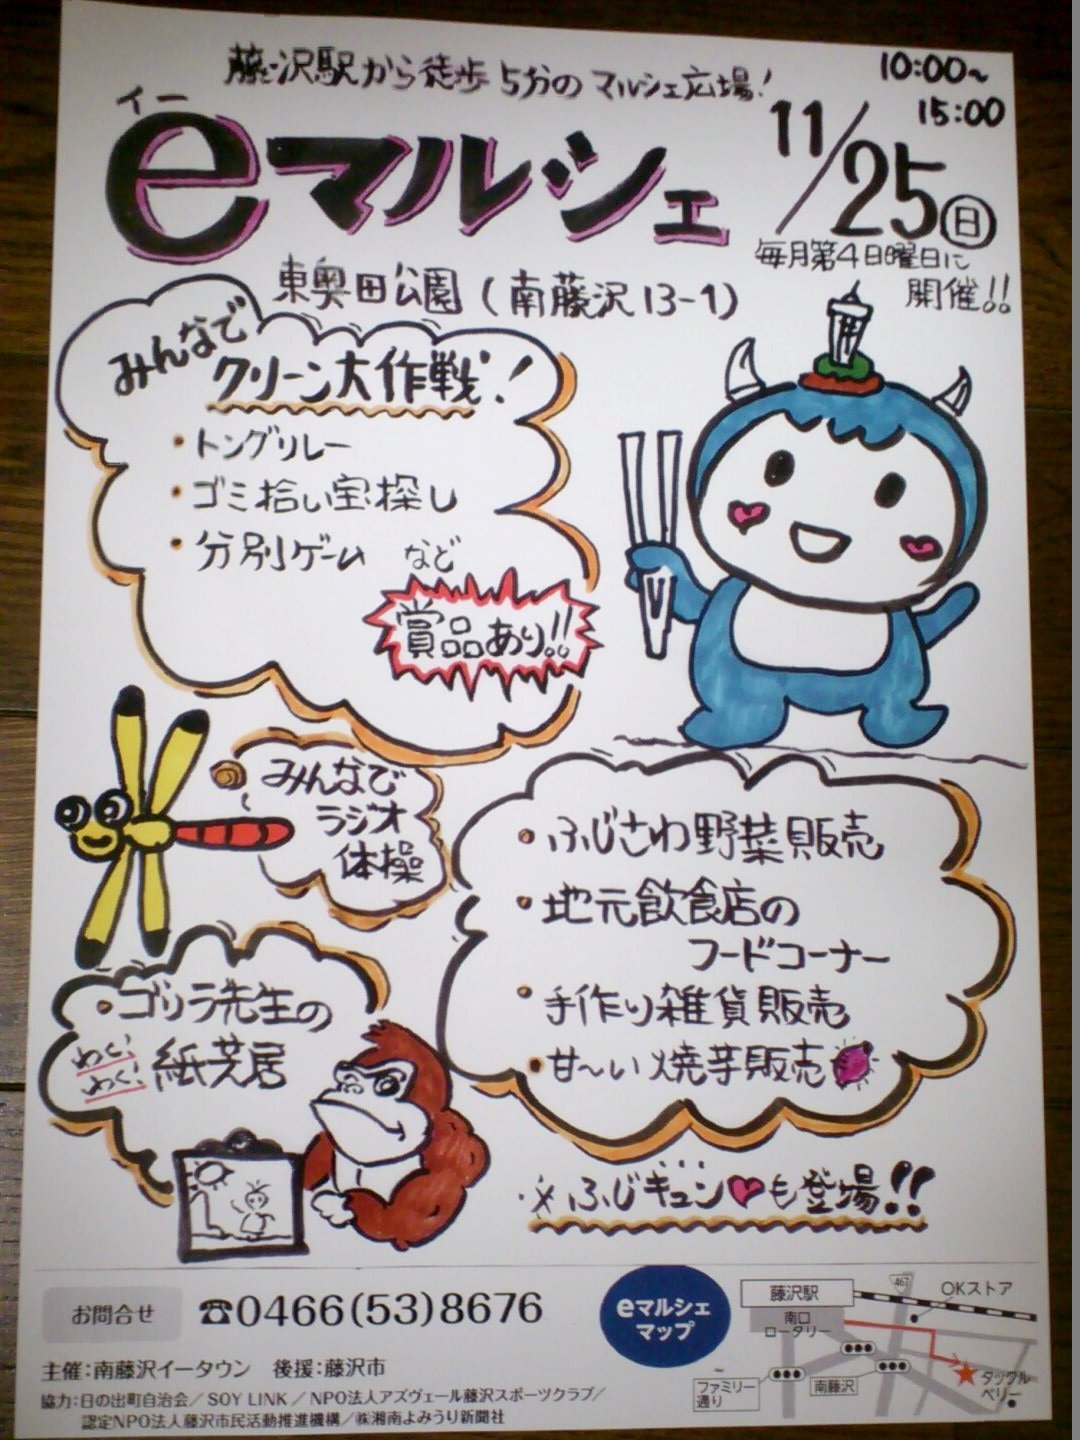 藤沢駅から徒歩5分のマルシェ広場!
10:00~
15:00
イー
eマルシェ
11/25日
毎月第4日曜日に
開催!!
東奥田公園(南藤沢13-1)
みんなで
クリーン大作戦!
・トングリレー
・ゴミ拾い宝探し
・分別ゲーム など
賞品あり!!
みんなで
ラジオ
体操
・ふじさわ野菜販売
・地元飲食店の
フードコーナー
・手作り雑貨販売
・甘~い焼芋販売
・ゴリラ先生の
わく!わく!紙芝居
※ふじキュン♥も登場!!
お問合せ ☎0466(53)8676
主催:南藤沢イータウン 後援:藤沢市
協力:日の出町自治会/SOY LINK/NPO法人アズヴェール藤沢スポーツクラブ/
認定NPO法人藤沢市民活動推進機構/㈱湘南よみうり新聞社
eマルシェ
マップ
藤沢駅
467
OKストア
南口
ロータリー
ファミリー
通り
南藤沢
★タックル
ベリー